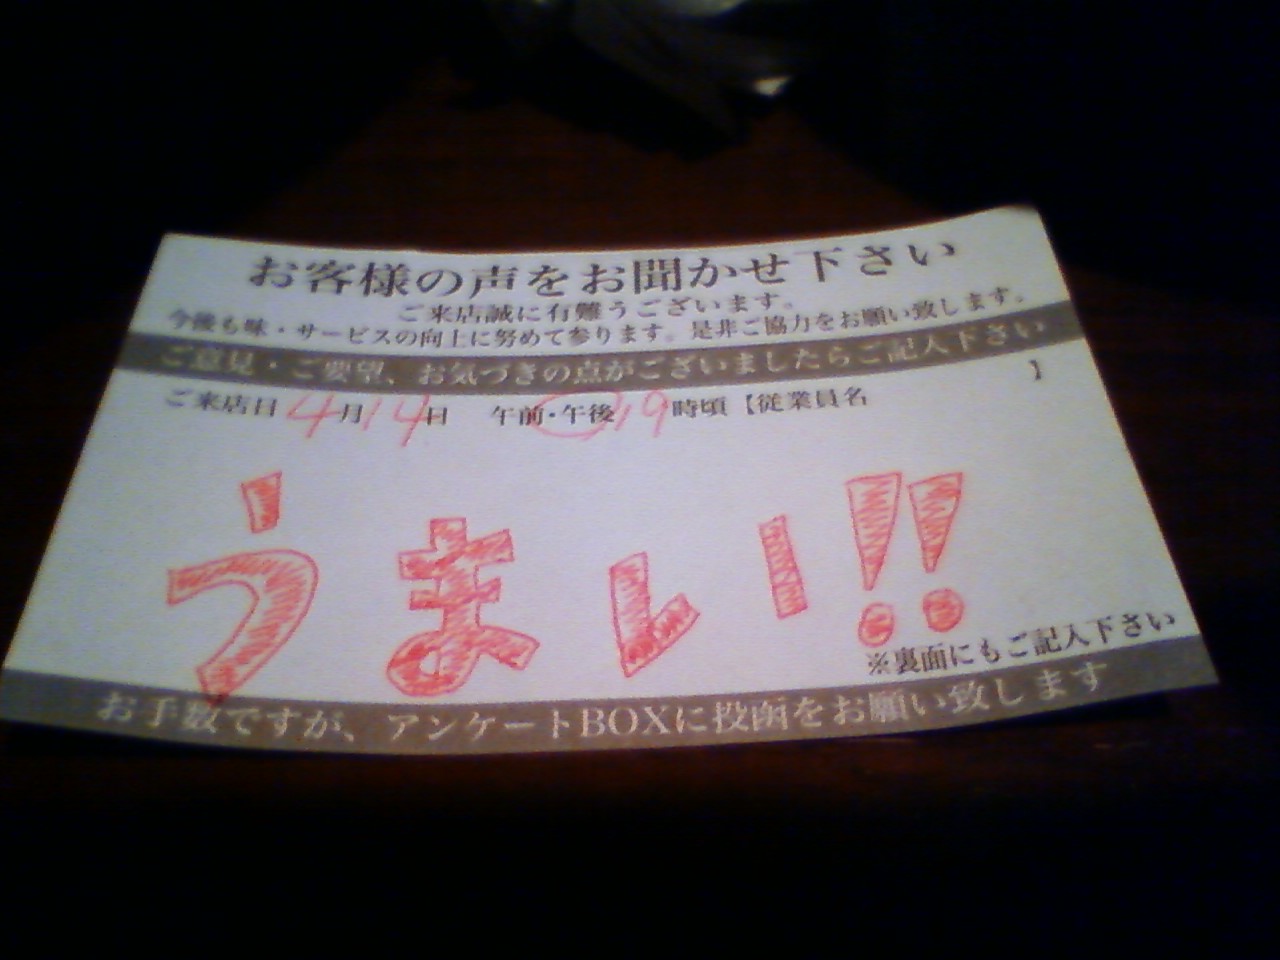 お客様の声をお聞かせ下さい
ご来店誠に有難うございます。
今後も味・サービスの向上に努めて参ります。是非ご協力をお願い致します。
ご意見・ご要望、お気づきの点がございましたらご記入下さい
ご来店日 4月14日 午前・午後 19時頃【従業員名 】
うまい!!
※裏面にもご記入下さい
お手数ですが、アンケートBOXに投函をお願い致します